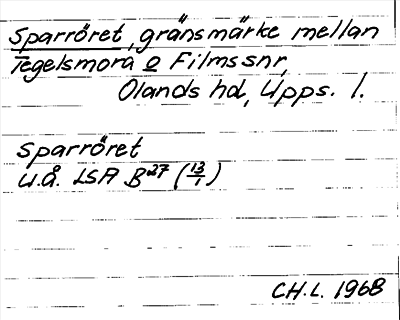 Sparröret, gränsmärke mellan
Tegelsmora o Films snr,
Olands hd, Upps. l.
Sparröret
u.å. LSA B 27 (13/1)
CH.L. 1968